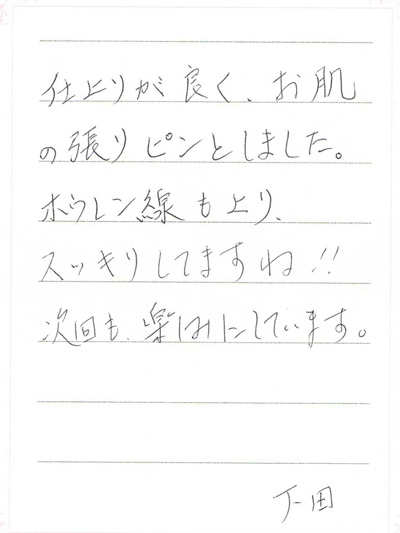 仕上りが良く、お肌
の張りピンとしました。
ホウレン線も上り、
スッキリしてますね!!
次回も、楽しみにしています。
下田